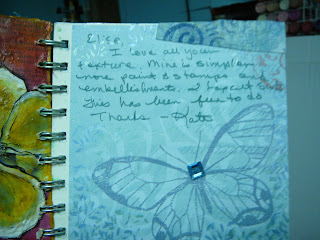 Elica,
I love all your
texture. Mine is simpler
more paint & stamps and
embellishments.
This has been fun to do
Thanks - Patti